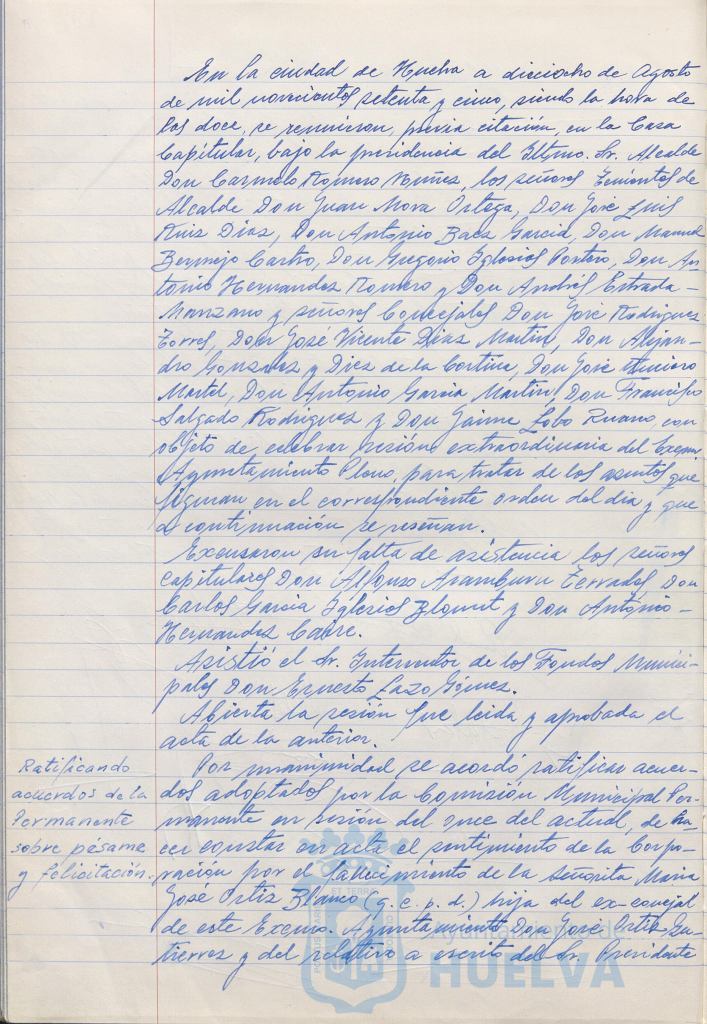 En la ciudad de Huelva a dieciocho de Agosto
de mil novecientos setenta y cinco, siendo la hora de
las doce, se reunieron, previa citación, en la Casa
Capitular, bajo la presidencia del Iltmo. Sr. Alcalde
Don Carmelo Romero Nuñez, los señores Tenientes de
Alcalde Don Juan Mora Ortega, Don José Luis
Ruiz Diaz, Don Antonio Baez Garcia, Don Manuel
Bermejo Castro, Don Gregorio Iglesias Portero, Don An-
tonio Hernandez Romero y Don Andrés Estrada
Manzano y señores Concejales Don José Rodriguez
Torres, Don José Vicente Diaz Martin, Don Alejan-
dro Gonzalez y Diez de la Cortina, Don José
Martel, Don Antonio Garcia Martin, Don Francisco
Salgado Rodriguez y Don Jaime Lobo Ruano, con
objeto de celebrar sesión extraordinaria del Excmo.
Ayuntamiento Pleno, para tratar de los asuntos que
figuran en el correspondiente orden del dia y que
a continuación se reseñan.
Excusaron su falta de asistencia los señores
capitulares Don Alfonso Aramburu Terrades, Don
Carlos Garcia Iglesias y Don Antonio
Hernandez
Asistió el Sr. Interventor de los Fondos Munici-
pales Don Ernesto Lazo Gómez.
Abierta la sesión fue leida y aprobada el
acta de la anterior.
Ratificando
acuerdos de la
Permanente
sobre pésame
y felicitación.
Por unanimidad se acordó ratificar acuer-
dos adoptados por la Comisión Municipal Per-
manente en sesión del once del actual, de ha-
cer constar en acta el sentimiento de la Corpo-
ración por el fallecimiento de la Señorita Maria
José Ortiz Blanco (q. e. p. d.) hija del ex-concejal
de este Excmo. Ayuntamiento Don José Ortiz Gu-
tierrez y del relativo a escrito del Sr. Presidente
Ayuntamiento de
HUELVA